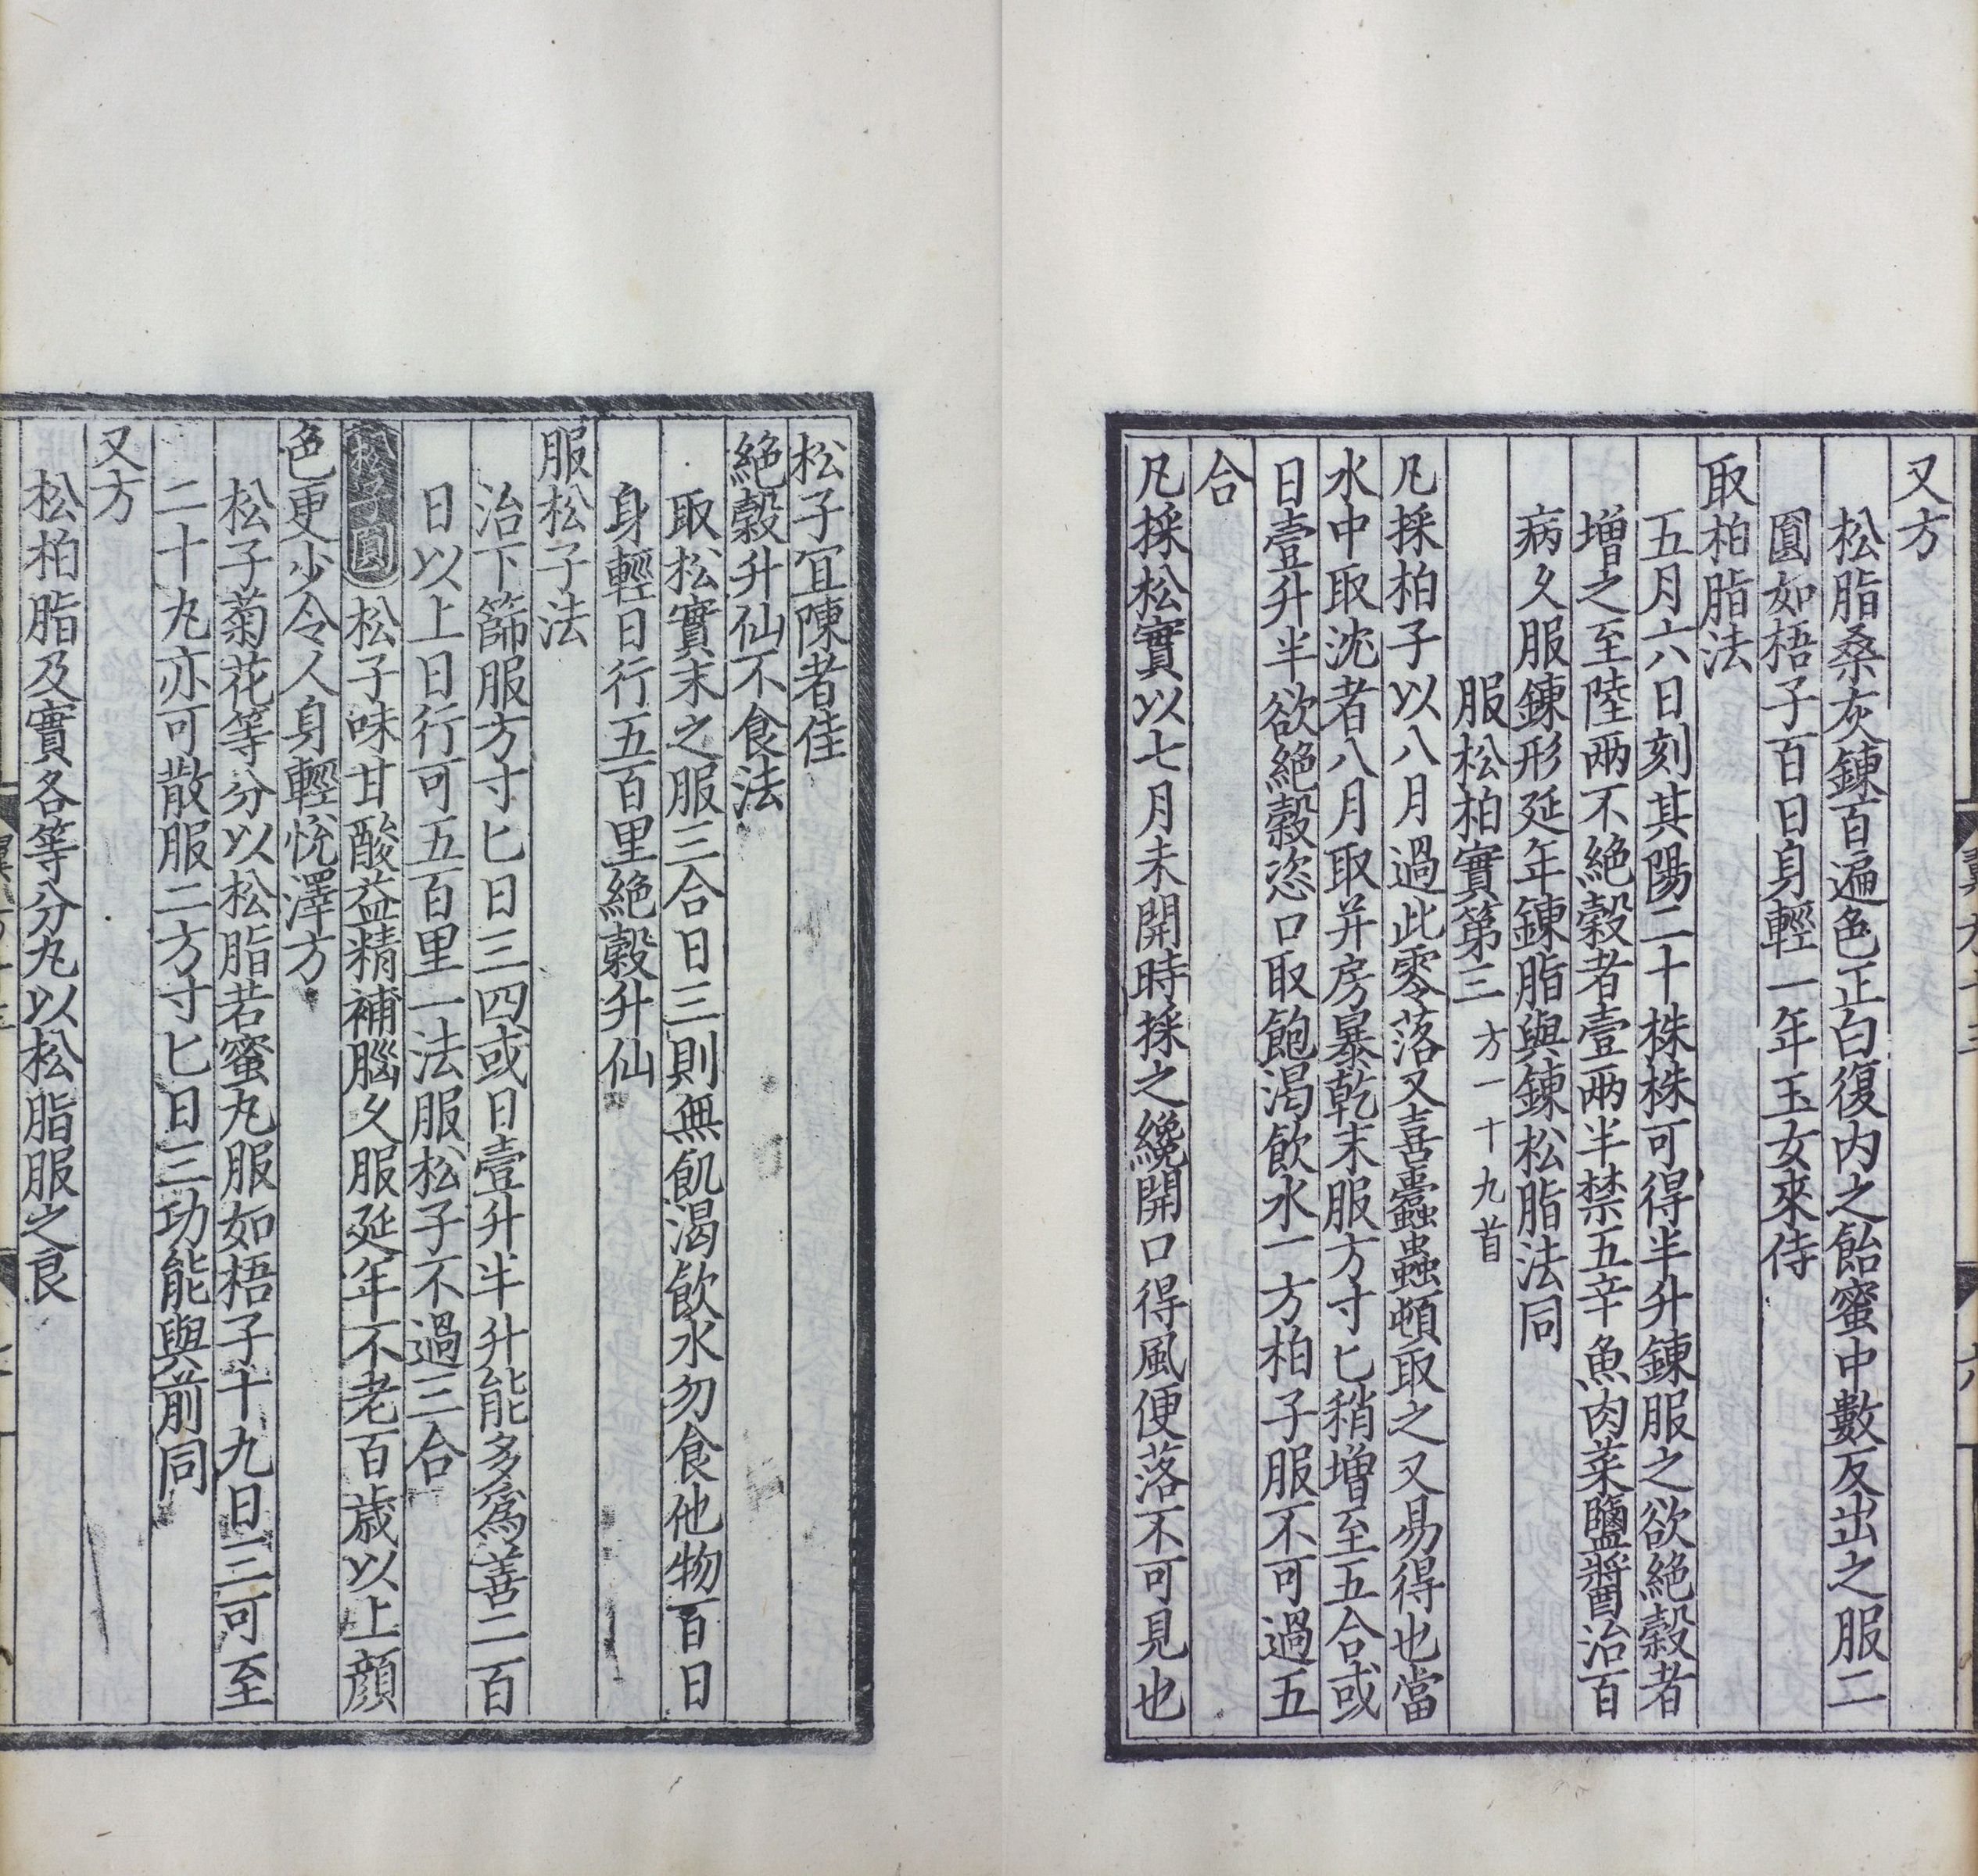 又方
松脂桑灰鍊百遍色正白復内之飴蜜中數反出之服二
圓如梧子百日身輕一年玉女來侍
取柏脂法
五月六日刻其陽二十株株可得半升鍊服之欲絶穀者
增之至陸兩不絶穀者壹兩半禁五辛魚肉菜鹽醬治百
病久服鍊形延年鍊脂與鍊松脂法同
服松柏實第三 方一十九首
凡採柏子以八月過此零落又喜蠹蟲頓取之又易得也當
水中取沈者八月取并房暴乾末服方寸匕稍增至五合或
日壹升半欲絶穀恣口取飽渴飲水一方柏子服不可過五
合
凡採松實以七月未開時採之纔開口得風便落不可見也
松子宜陳者佳
絶穀升仙不食法
取松實末之服三合日三則無飢渴飲水勿食他物百日
身輕日行五百里絶穀升仙
服松子法
治下篩服方寸匕日三四或日壹升半升能多爲善二百
日以上日行可五百里一法服松子不過三合
松子圓 松子味甘酸益精補腦久服延年不老百歲以上顔
色更少令人身輕悅澤方
松子菊花等分以松脂若蜜丸服如梧子十九日三可至
二十丸亦可散服二方寸匕日三功能與前同
又方
松柏脂及實各等分丸以松脂服之良